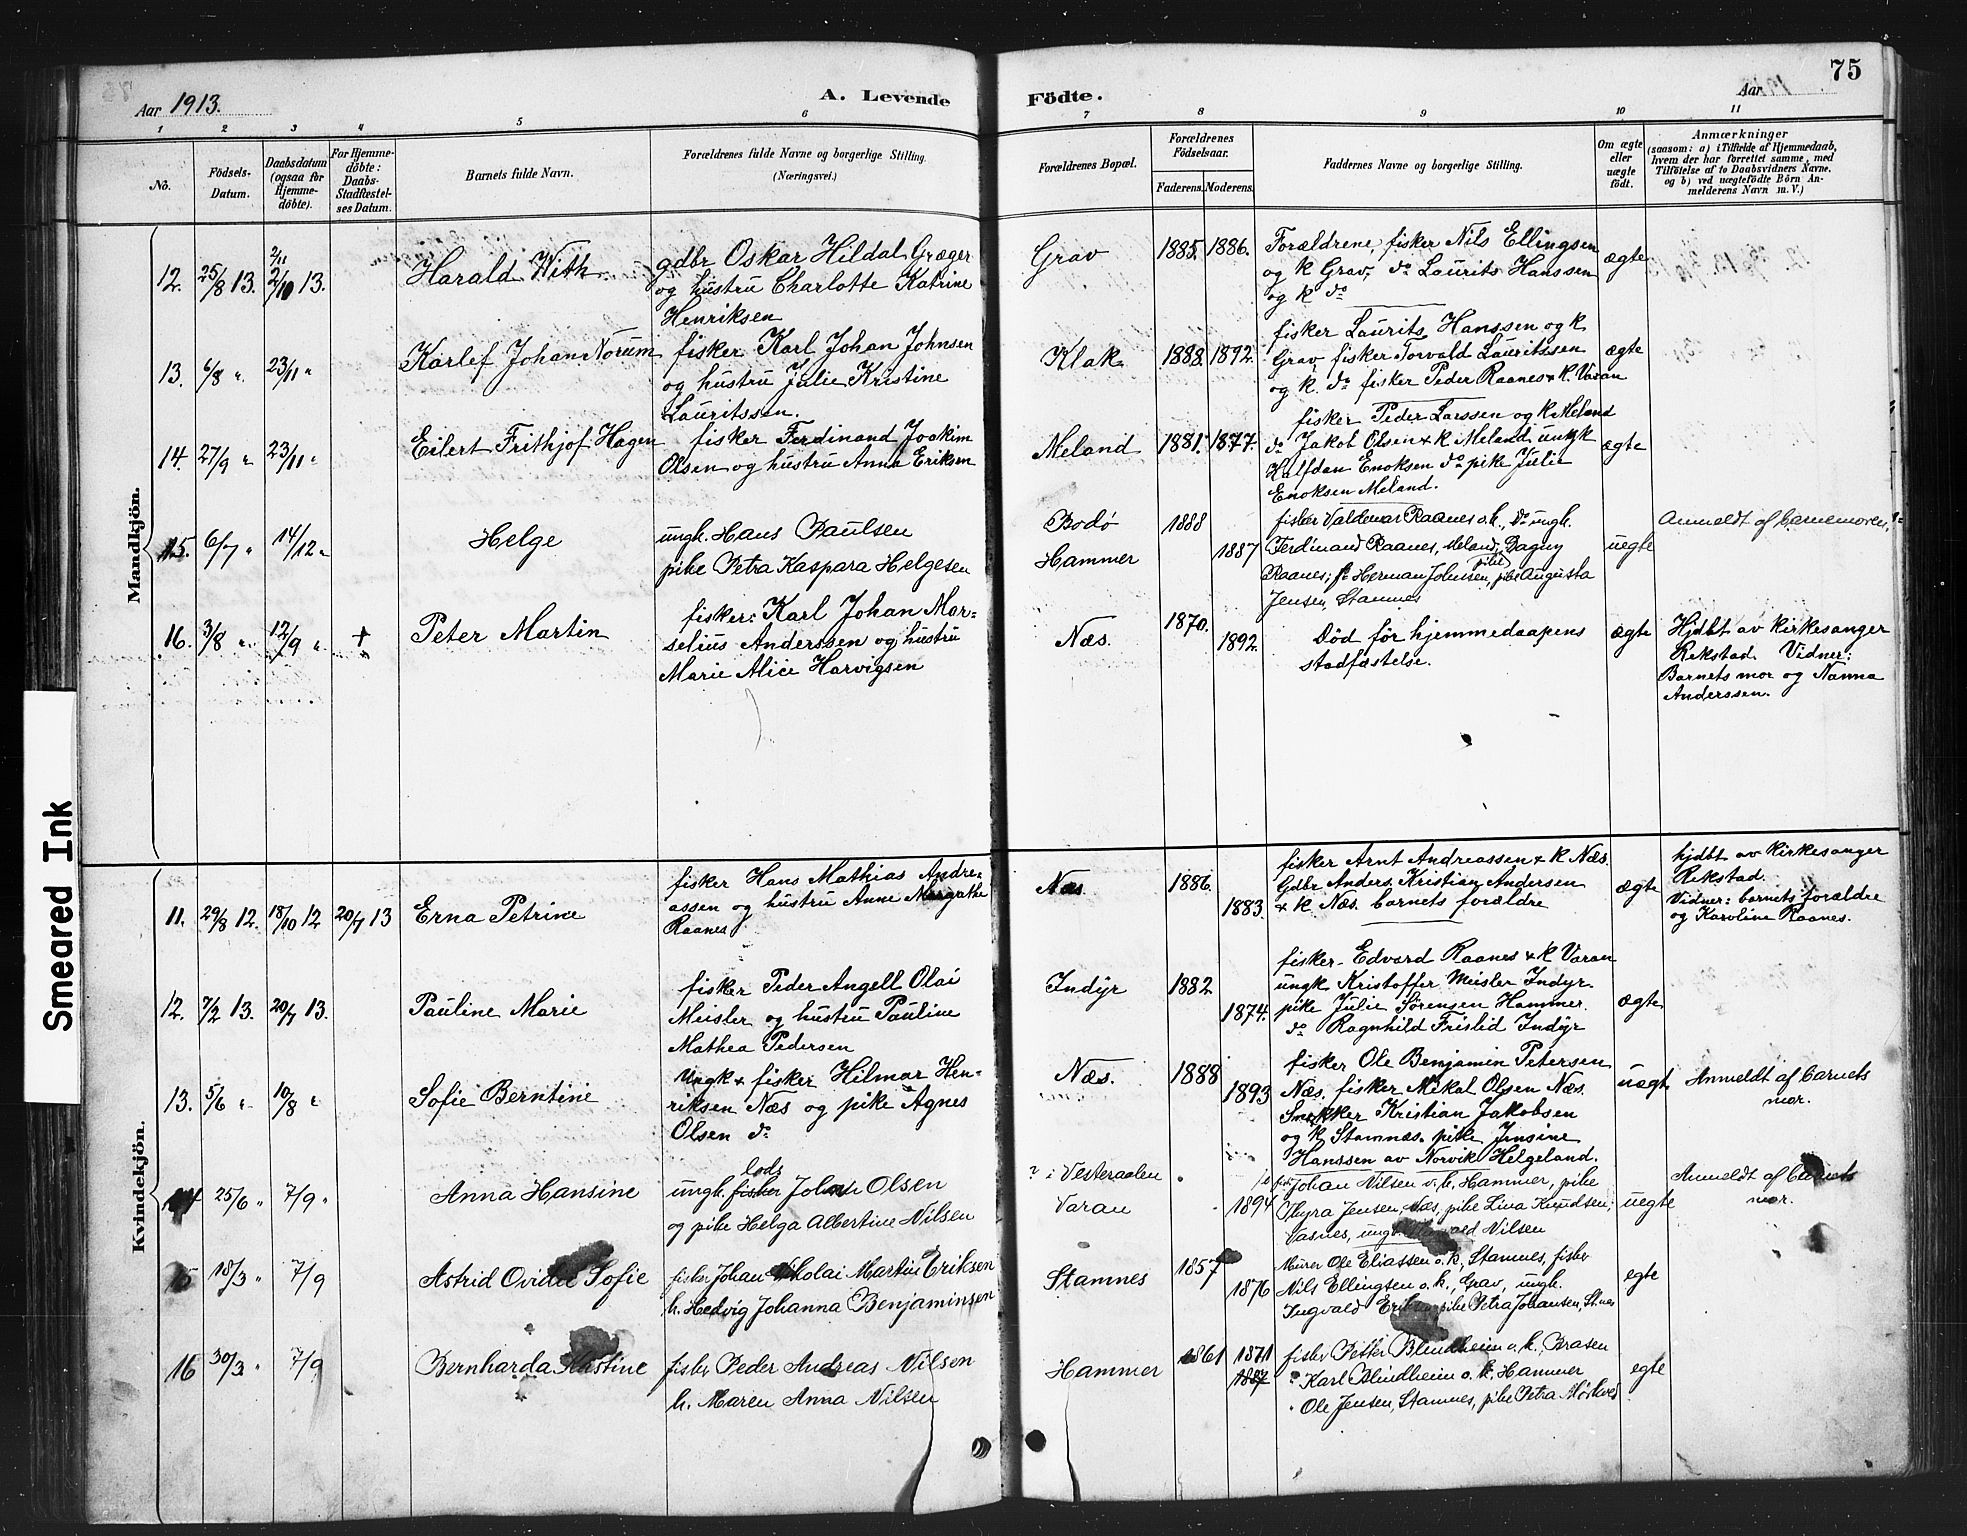 75
Aar 1913.
A. Levende Födte.
Aar
1 2 3 4 5 6 7 8 9 10 11
No.
Födsels-Datum.
Daabsdatum (ogsaa for Hjemme-döbte).
For Hjemme-döbte: Daabs-Stadfæstel-ses Datum.
Barnets fulde Navn.
Forældrenes fulde Navne og borgerlige Stilling.
(Næringsvei.)
Forældrenes Bopæl.
Forældrenes Födselsaar.
Faderens. Moderens.
Faddernes Navne og borgerlige Stilling.
Om ægte eller uægte födt.
Anmærkninger
(saasom: a) i Tilfælde af Hjemmedaab,
hvem der har forrettet samme, med
Tilföielse af to Daabsvidners Navne.
og b) ved uægtefödte Börn An-
melderens Navn m. V.)
Mandkjön.
12. 25/8 13. 2/11 2/10 13. Harald With gdbr Oskar Hildal Græger
og hustru Charlotte Katrine
Henriksen
Grav 1885. 1886. Forældrene, fisker Nils Ellingsen
og k Grav, do Laurits Hanssen
og k do
ægte
13. 6/8 " 23/11 " Karlef Johan Norum fisker Karl Johan Johnsen
og hustru Julie Kristine
Lauritssen.
Klak 1888. 1892. fisker Laurits Hanssen og k
Grav, fisker Torvald Lauritssen
og k. do fisker Peder Raanes & k. Varan
ægte
14. 27/9 " 23/11 " Eilert Frithjof Hagen fisker Ferdinand Joakim
Olsen og hustru Anna Eriksen
Meland 1881. 1877. fisker Peder Larssen og k Meland
do Jakob Olsen & k Meland ungk
Halfdan Enoksen do pike Julie
Enoksen Meland.
ægte
15. 6/7 " 14/12 " Helge ungk. Hans Paulsen
pike Petra Kaspara Helgesen
Bodø
Hammer
1888 1887 fisker Valdemar Raanes o.k., do ungk.
Ferdinand Raanes, Meland, Dagny
Raanes; Herman Johnsen, pike Augusta
Jensen, Stamnes
uegte
Anmeldt af barnemoren
16. 3/8 " 12/9 " + Peter Martin fisker: Karl Johan Mar-
selius Anderssen og hustru
Marie Alice Harvigsen
Næs. 1870. 1892. Død før hjemmedaapens
stadfæstelse.
ægte
Hjdbt av kirkesanger
Rekstad. Vidner:
Barnets mor og Nanna
Anderssen.
Kvindekjön.
11. 29/8 12. 18/10 12 20/7 13 Erna Petrine fisker Hans Mathias Andre-
assen og hustru Anne Margrathe
Raanes
Næs 1886. 1883. fisker Arnt Andreassen & k Næs.
Gdbr Anders Kristian Andersen
& k Næs. barnets forældre
ægte
hjdbt av kirkesanger
Rekstad.
Vidner: barnets forældre
og Karoline Raanes.
12. 7/2 13. 20/7 13. Pauline Marie fisker Peder Angell Olai
Meisler og hustru Pauline
Mathea Pedersen
Indyr 1882 1874. fisker Edvard Raanes & k Varan
ungk Kristoffer Meisler Indyr
pike Julie Sørensen Hammer
do Ragnhild Frislid Indyr
ægte
13. 5/6 " 10/8 " Sofie Berntine Ungk & fisker Hilmar Hen-
riksen Næs og pike Agnes
Olsen do
Næs. 1888 1893 fisker Ole Benjamin Petersen
Næs. fisker Mikal Olsen Næs.
Snekker Kristian Jakobsen
og k Stamnæs. pike Jensine
Hanssen av Norvik Helgeland.
uægt
Anmeldt af barnets
mor.
14 25/6 " 7/9 " Anna Hansine lods
ungk. fisker Johan Olsen
og pike Helga Albertine Nilsen
? i Vesteraalen
Varan
1894 Johan Nilsen o. k. Hammer, pike
Thyra Jensen, Næs, pike Lina Knudsen,
Vasnes, ungk. Nilsen
uegte
Anmeldt af barnets
mor.
15 18/3 " 7/9 Astrid Ovidie Sofie fisker Johan Nikolai Martin Eriksen
h. Hedvig Johanna Benjaminsen
Stamnes 1857 1876 Murer Ole Eliassen o.k., Stamnes, fisker
Nils Ellingsen o.k., Grav, ungk.
Ingvald pike Petra Johansen, St.nes
egte
16 30/3 " 7/9 Bernharda fisker Peder Andreas Nilsen
h. Maren Anna Nilsen
Hammer 1861 1871 1887 fisker Petter Blindheim o. k., Brasen
" Karl Blindheim o. k. Hammer
" Ole Jensen, Stamnes, pike Petra Mørkved
egte
Smeared Ink